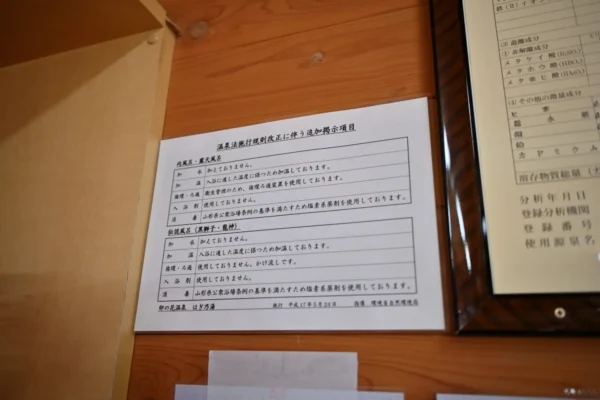 温泉法施行規則改正に伴う追加掲示項目
内風呂・露天風呂
加　水　加えておりません。
加　温　入浴に適した温度に保つため加温しております。
循環・ろ過　衛生管理のため、循環ろ過装置を使用しております。
入浴剤　使用しておりません。
消　毒　山形県公衆浴場条例の基準を満たすため塩素系薬剤を使用しております。
伝説風呂（黒獅子・龍神）
加　水　加えておりません。
加　温　入浴に適した温度に保つため加温しております。
循環・ろ過　使用しておりません。かけ流しです。
入浴剤　使用しておりません。
消　毒　山形県公衆浴場条例の基準を満たすため塩素系薬剤を使用しております。
卯の花温泉　はぎ乃湯　施行　平成17年5月24日　指導　環境省自然環境局
③遊離成分
1)非解離成分
メタケイ酸(H₂SiO₃)
メタホウ酸(HBO₂)
メタ亜ヒ酸(HAsO₂)
(4)その他の微量成分
総水銀
銅
鉛
カドミウム
溶存物質総量
分析年月日
登録分析機関
登録番号
使用源泉名